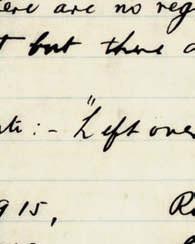 ere are no reg
t but there a
te :- "Left over
915,